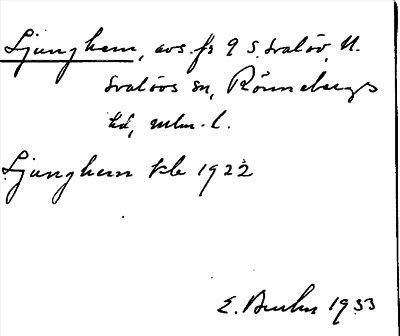 Ljunghem, avs. fr 9 S. Svalöv, N.
Svalövs sn, Rönnebergs
hd, Mlm. l.
Ljunghem kb 1922
E. 1933